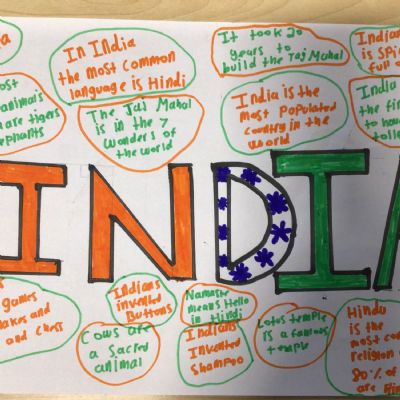 In India
the most common
language is Hindi
It took 20
years to
build the Taj Mahal
Indian
is spi
full o
ost
animals
are tigers
lephants
The Taj Mahal
is in the 7
wonders of
the world
India is the
most Populated
country in the
world
India
the fir
to hav
toile
INDIA
games
akes and
and chess
Indians
invented
Buttons
Cows are
a sacred
animal
Namaste
means Hello
in Hindi
Indians
Invented
shampoo
Lotus temple
is a famous
temple
Hindu
is the
most co
religion
80% of
are Hin